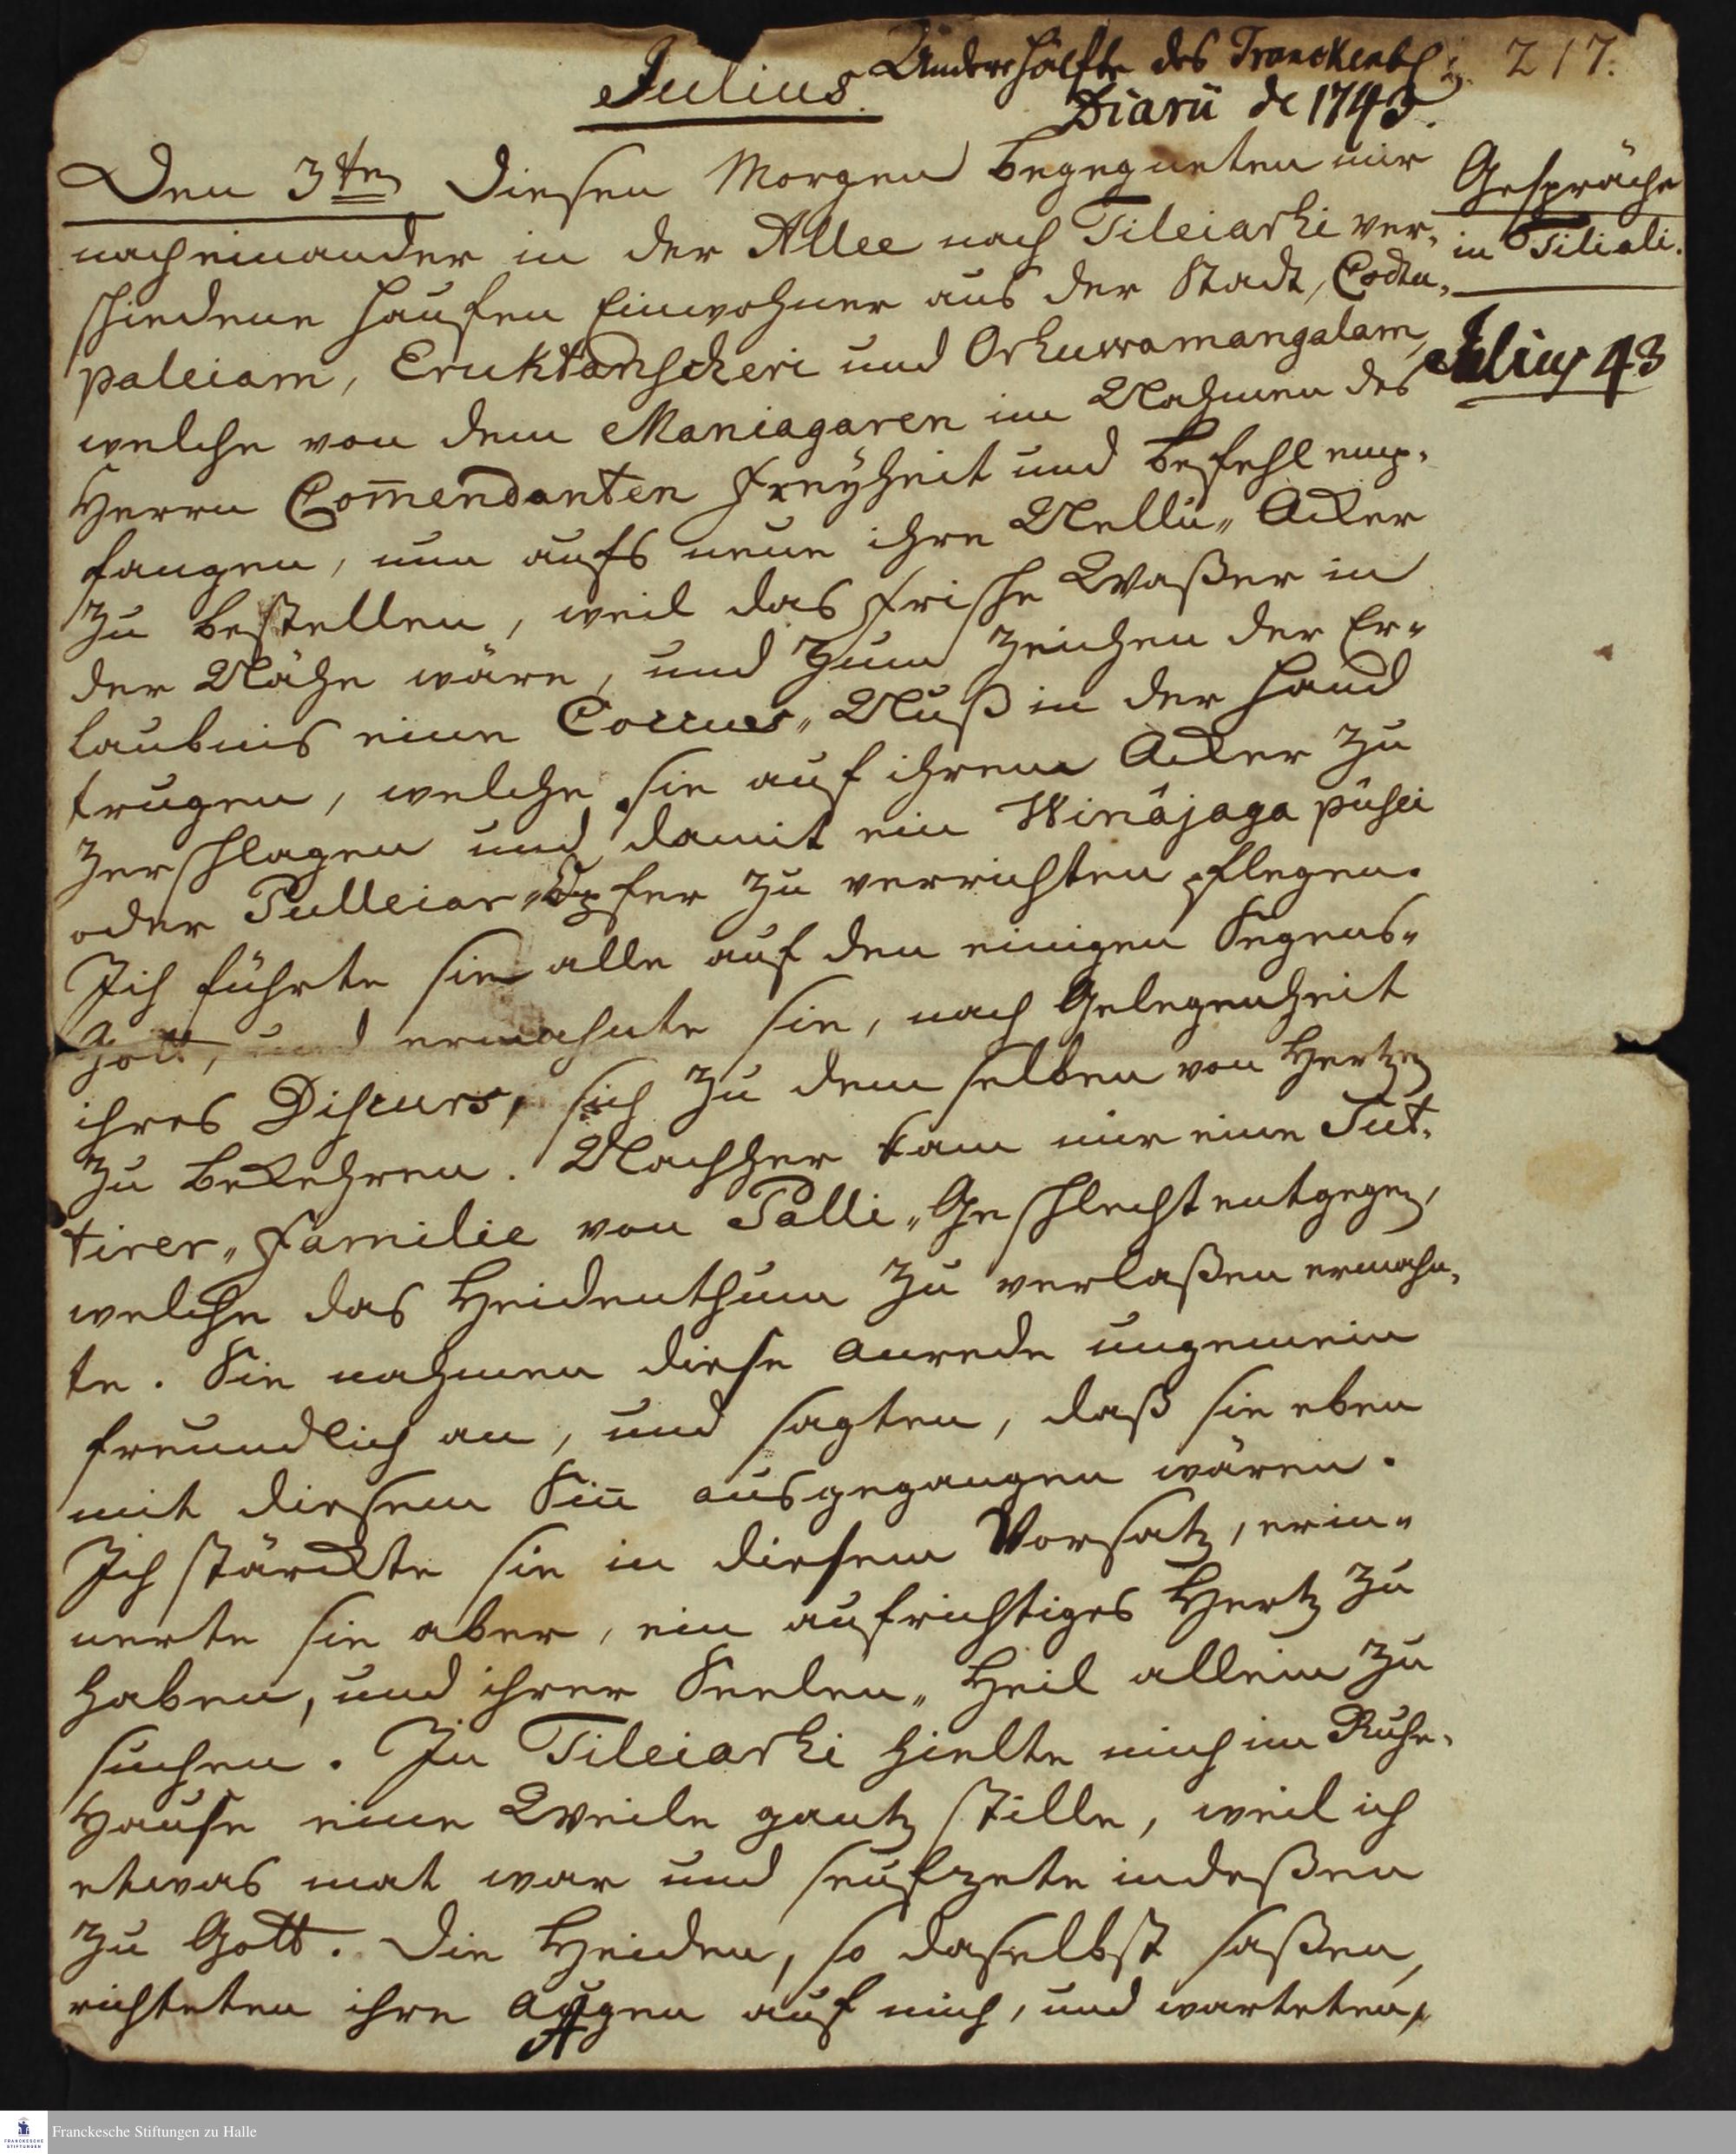 Julius.
Andere Hälfte des Tranckenb:
Diarii de 1743.
217.
Den 3ten Diesen Morgen begegneten mir
nach einander in der Allee nach Tileiarhi ver-
schiedene Haufen Einwohner aus der Stadt, Codtu-
paleiam, Eruktanscheri und Orhuwamangalam,
welche von dem Maniagaren im Nahmen des
Herrn Com̄endanten Freÿheit und Befehl emp-
fangen, nun aufs neue ihre Nellu- Äcker
zu bestellen, weil das frische Waßer in
der Nähe wäre, und zum Zeichen der Er-
laubnis eine Cocus- Nuß in der Hand
trugen, welche sie auf ihrem Acker zu
zerschlagen und damit ein Winâjaga pûhei
oder Pulleiar- Opfer zu verrichten pflegen.
Ich führte sie alle auf den einigen Segens-
Gott, und ermahnte sie, nach Gelegenheit
ihres Discurs, sich zu dem selben von Hertzen
zu bekehren. Nachher kam mir eine Sut-
tirer- Familie von Palli- Geschlecht entgegen,
welche das Heidenthum zu verlaßen ermahn-
te. Sie nahmen diese Anrede ungemein
freundlich an, und sagten, daß sie eben
mit diesem Sin̄ ausgegangen wären.
Ich stärckte sie in diesem Vorsatz, erin-
nerte sie aber, ein aufrichtiges Hertz zu
haben, und ihrer Seelen- Heil allein zu
suchen. In Tileiarhi hielte mich im Ruhe-
Hause eine Weile gantz stille, weil ich
etwas mat war und seufzete indeßen
zu Gott. Die Heiden, so daselbst saßen,
richteten ihre Augen auf mich, und warteten,
A
Gespräche
in Tiliali.
Julius 43
Franckesche Stiftungen zu Halle